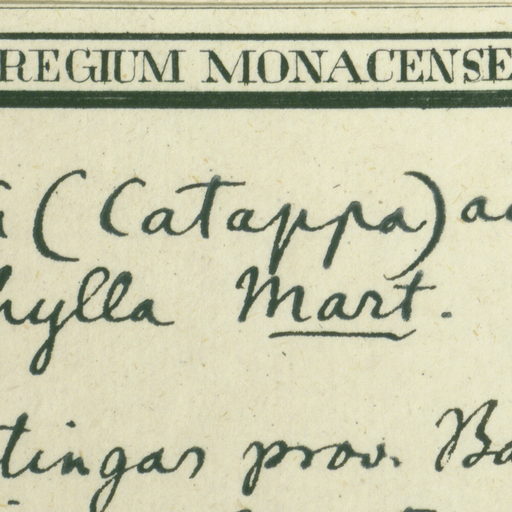 REGIUM MONACENSE
(Catappa)
hylla Mart.
tingas prov. Ba